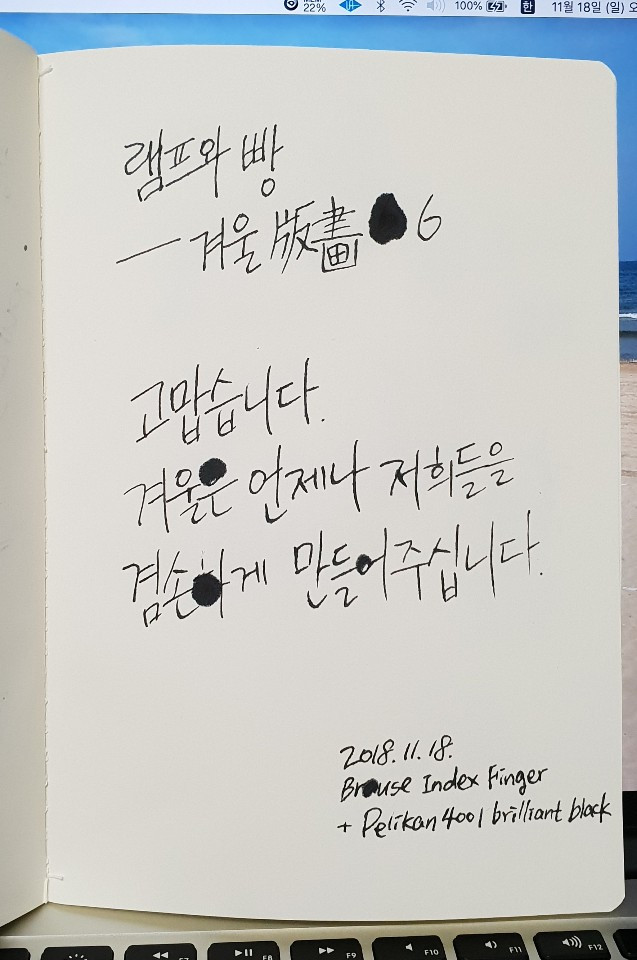 22%
100%
한
11월 18일 (일) 오
램프와 빵
— 겨울 版畫 6
고맙습니다.
겨울은 언제나 저희들을
겸손하게 만들어주십니다.
2018. 11. 18.
Brause Index Finger
+ Pelikan 4001 brilliant black
F7
F8
F9
F10
F11
F12